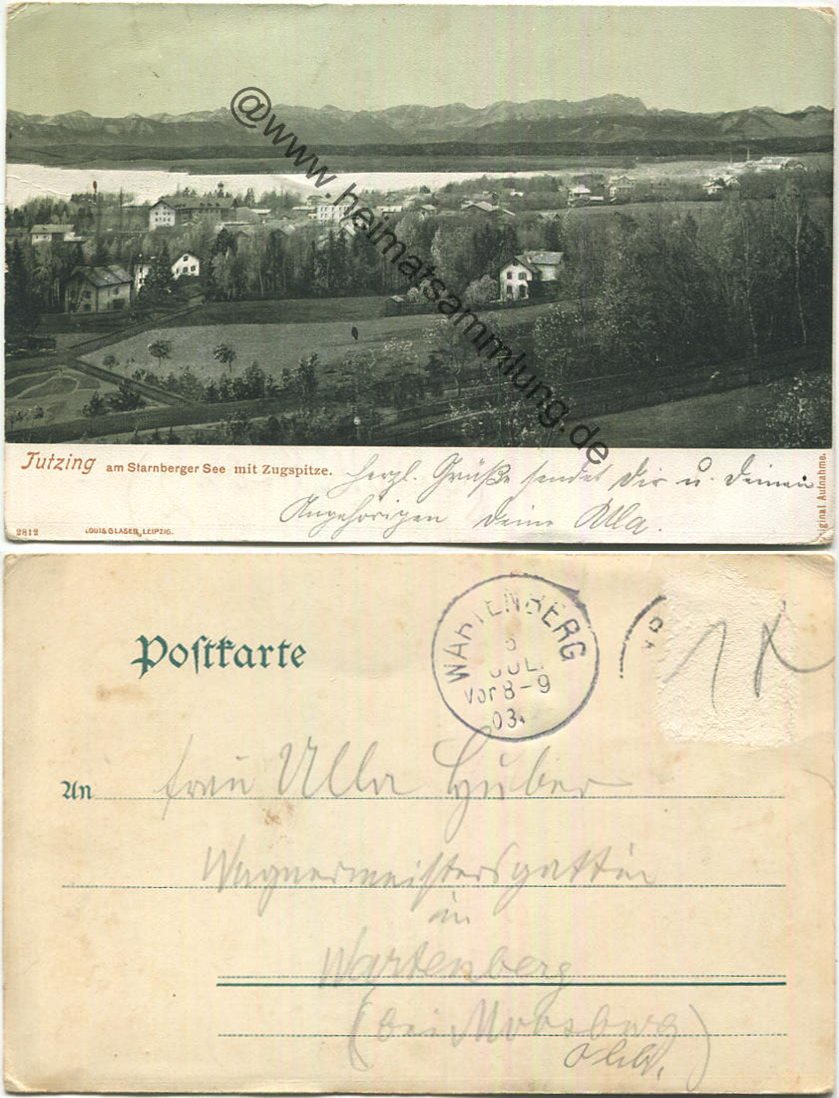 @www.heimatsammlung.de
Tutzing am Starnberger See mit Zugspitze. Herzl. Grüße sendet Dir u. Deinen
Angehörigen deine Ulla.
2812 LOUIS GLASER, LEIPZIG.
Original Aufnahme.
Postkarte
WARTENBERG
JUL.
Vor 8-9
03.
An Frau Ulla Huber
Wagnermeistersgattin
in
Wartenberg
(bei Moosburg
)